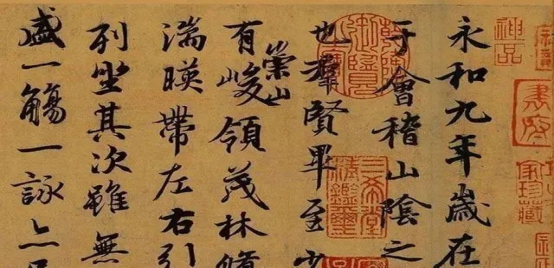 永和九年歲在
于會稽山陰之
也羣賢畢至少
有崇山峻領茂林脩
湍暎帶左右引
列坐其次雖無
盛一觴一詠亦足
神品